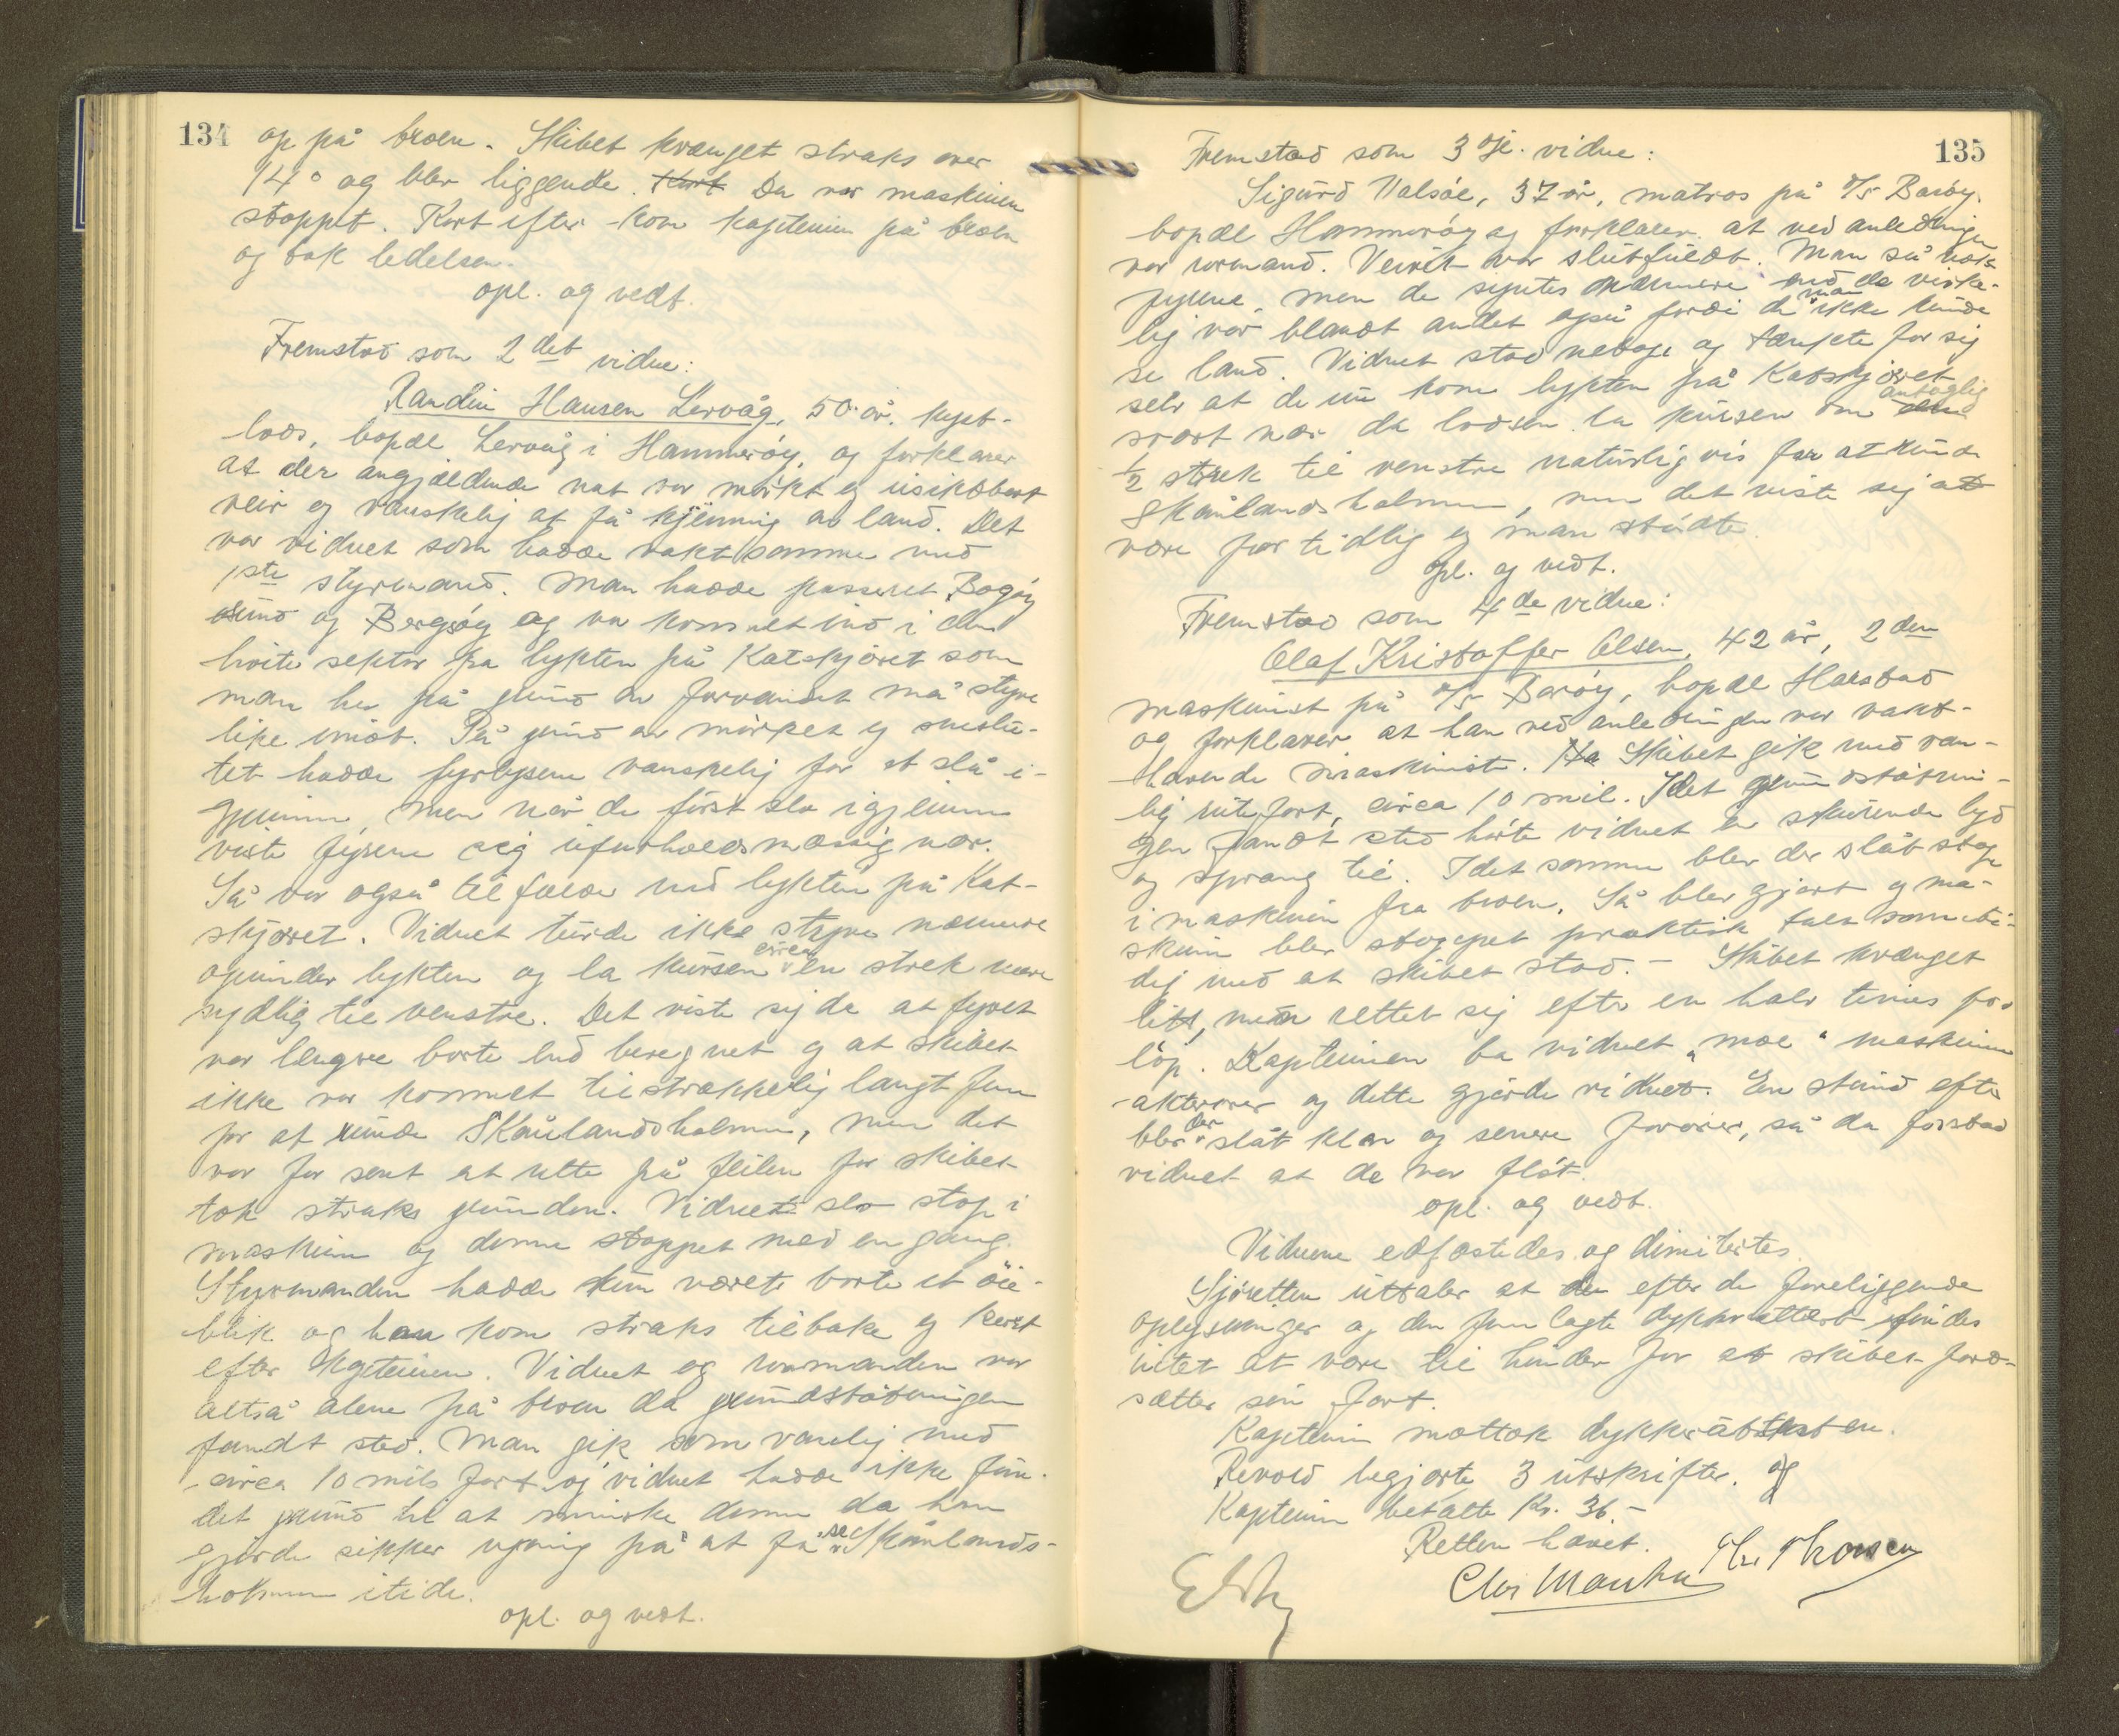 134
op på broen. Skibet krænget straks over
14° og blev liggende. Kort Da var maskinen
stoppet. Kort efter kom kapteinen på broen
og tok ledelsen.
opl. og vedt.
Fremstod som 2det vidne:
Randin Hansen Lervåg, 50 år, kyst-
lods, bopæl Lervåg i Hammerøy, og forklarer
at der angjældende nat var mørkt og usiktbart
veir og vanskelig at få kjenning av land. Det
var vidnet som hadde vakt sammen med
1ste styrmand. Man hadde passeret Bogøy
sund og Bergsøy og var kommet ind i den
hvite sektor fra lykten på Katskjæret som
man her på grund av farvandet må styre
like imot. På grund av mørket og sneslu-
tet hadde fyrlysene vanskelig for at slå i-
gjennem, men når de først slo igjennem
viste fyrene sig uforholdsmæssig nær.
Så var også tilfælde med lykten på Kat-
skjæret. Vidnet turde ikke styre nærmere
opunder lykten og la kursen circa en strek mere
sydlig til venstre. Det viste sig da at fyret
var længre borte end beregnet og at skibet
ikke var kommet tilstrækkelig langt frem
for at runde Skånlandsholmen, men det
var for sent at rette på feilen for skibet
tok straks grunden. Vidnet slo stop i
maskinen og denne stoppet med en gang.
Styrmanden hadde kun været borte et øie-
blik og han kom straks tilbake og
efter kapteinen. Vidnet og rormanden var
altså alene på broen da grundstøtningen
fandt sted. Man gik som vanlig med
circa 10 mils fart og vidnet hadde ikke fun-
det grund til at minske denne da han
gjorde sikker regning på at få se Skånlands-
holmen itide.
opl. og vedt.
135
Fremstod som 3dje vidne:
Sigurd Valsøe, 37 år, matros på D/S Barøy,
bopæl Hammerøy og forklarer at ved anledningen
var rormand. Veiret var slutfuldt. Man så nok
fyrene, men de syntes nærmere end de virke-
lig var blandt andet også fordi de man ikke kunde
se land. Vidnet stod netop og tænkte for sig
selv at de nu kom lykten på Katskjæret
svært nær da lodsen la kursen om antagelig
1/2 strek til venstre naturligvis for at runde
Skånlandsholmen, men det viste sig at
være for tidlig og man støtte.
opl. og vedt.
Fremstod som 4de vidne:
Olaf Kristoffer Olsen, 42 år, 2den
maskinist på D/S Barøy, bopæl Harstad
og forklarer at han ved anledningen var vakt-
havende maskinist. Ha Skibet gik med van-
lig rutefart, circa 10 mil. Idet grundstøtnin-
gen fandt sted hørte vidnet en skurende lyd
og sprang til. I det samme blev der slåt stop
i maskinen fra broen. Så blev gjort og ma-
skinen blev stoppet praktisk talt samti-
dig med at skibet stod. – Skibet krænget
litt, men rettet sig efter en halv times for-
løp. Kapteinen ba vidnet "mæ" maskinen
akterover og dette gjorde vidnet. En stund efter
blev der slåt klar og senere forover, så da forstod
vidnet at de var fløt.
opl. og vedt.
Vidnene edfæstedes og dimitertes.
Sjøretten uttaler at den efter de foreliggende
oplysninger og den fremlagte dykkerattest finder
intet at være til hinder for at skibet fort-
sætter sin fart.
Kaptein mottok dykkerattesten.
Revold begjærte 3 utskrifter. og
Kapteinen betalte Kr. 36.–
Retten hævet.